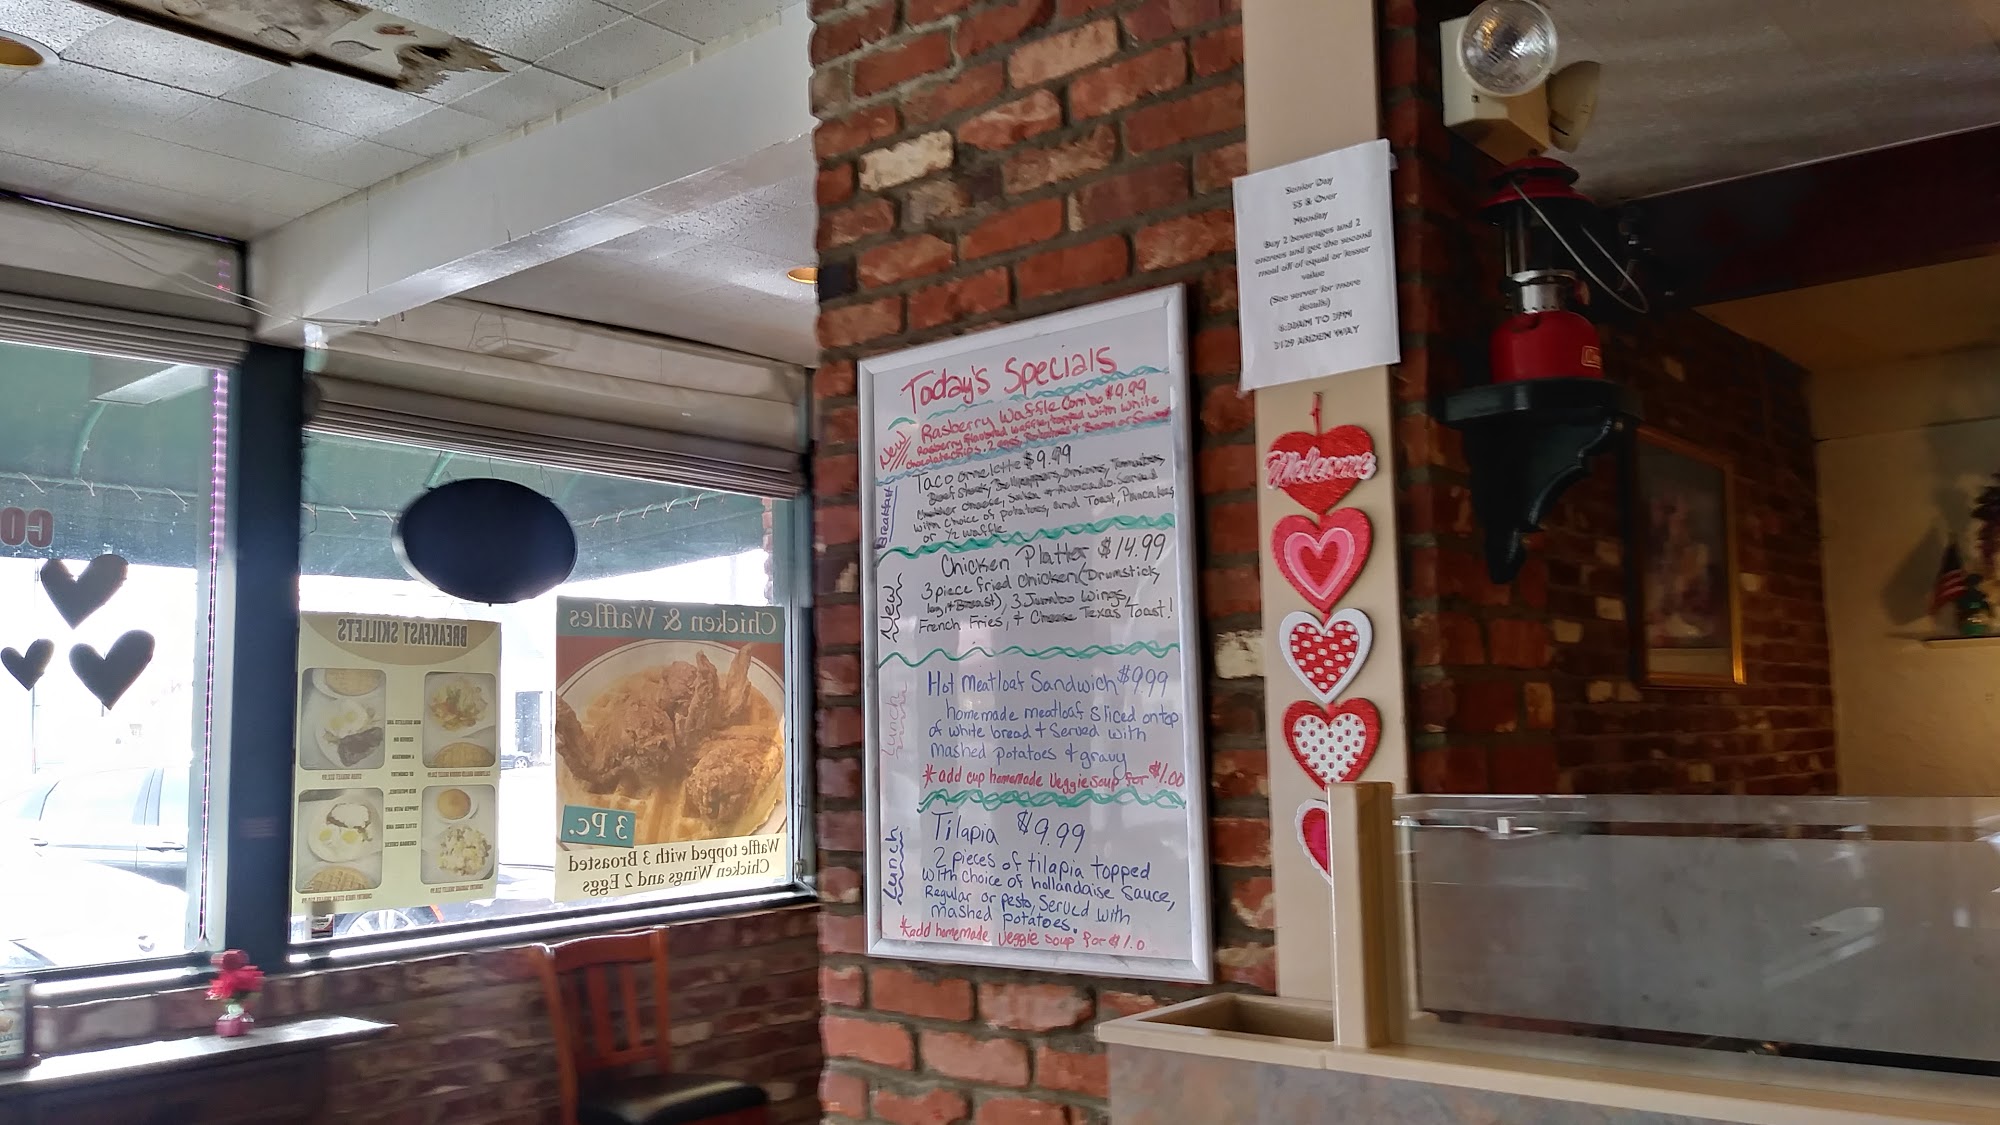 Today's Specials
New
Rasberry Waffle Combo $9.99
Rasberry flavored waffle, topped with white
chocolate chips. 2 eggs Potatoes + Bacon or
Breakfast
Taco omelette $9.99
Beef steak, Bellpeppers, onions, Tomatoes,
cheese, Salsa + Avocado. Served
with choice of potatoes, and Toast, Pancakes
or 1/2 waffle
New
Chicken Platter $14.99
3 piece fried chicken (Drumstick,
leg, + Breast), 3 Jumbo Wings,
French Fries, + Cheese Texas Toast!
Lunch
Hot Meatloaf Sandwich $9.99
homemade meatloaf sliced on top
of white bread + Served with
mashed potatoes + gravy
*add cup homemade Veggie soup for $1.00
Lunch
Tilapia $9.99
2 pieces of tilapia topped
with choice of hollandaise sauce,
Regular or pesto, Served with
mashed potatoes.
*add homemade veggie soup for $1.0
Senior Day
55 & Over
Monday
Buy 2 beverages and 2
entrees and get the second
meal off of equal or lesser
value
(See server for more
details)
6:30AM TO 3PM
3129 ARDEN WAY
Welcome
BREAKFAST SKILLETS
Chicken & Waffles
3 Pc.
Waffle topped with 3 Broasted
Chicken Wings and 2 Eggs
CO